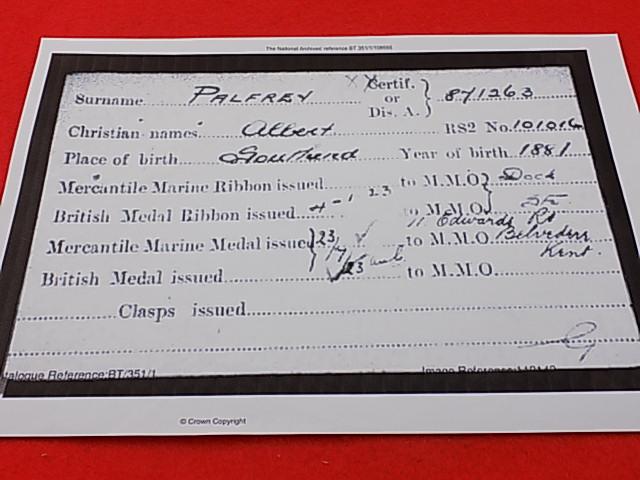 The National Archives' reference BT 351/1/108666
Surname PALFREY Certif. or Dis. A. 871263
Christian names Albert RS2 No. 101016
Place of birth Year of birth 1881
Mercantile Marine Ribbon issued to M.M.O. Dock
British Medal Ribbon issued 4-1 23 to M.M.O. St
11 Edwards Rd
Mercantile Marine Medal issued 23 to M.M.O. Belvedere
Kent.
British Medal issued 23 to M.M.O.
Clasps issued
talogue Reference:BT/351/1
© Crown Copyright